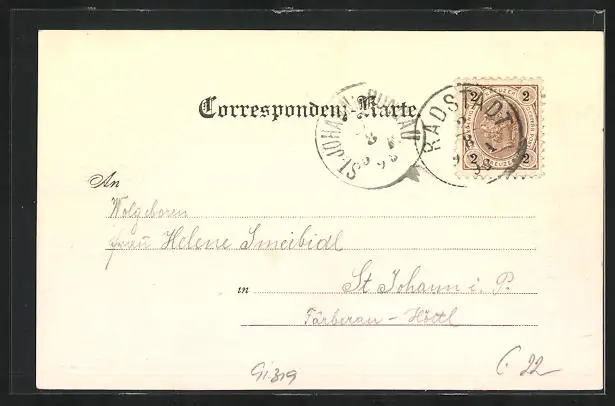 Correspondenz-Karte
ST. JOHANN PONGAU
RADSTADT
2 KREUZER 2
2 KREUZER 2
An
Wolgeboren
Frau Helene Smeibidl
in St Johann i. P.
Färberau - Höttl
91319
C. 22